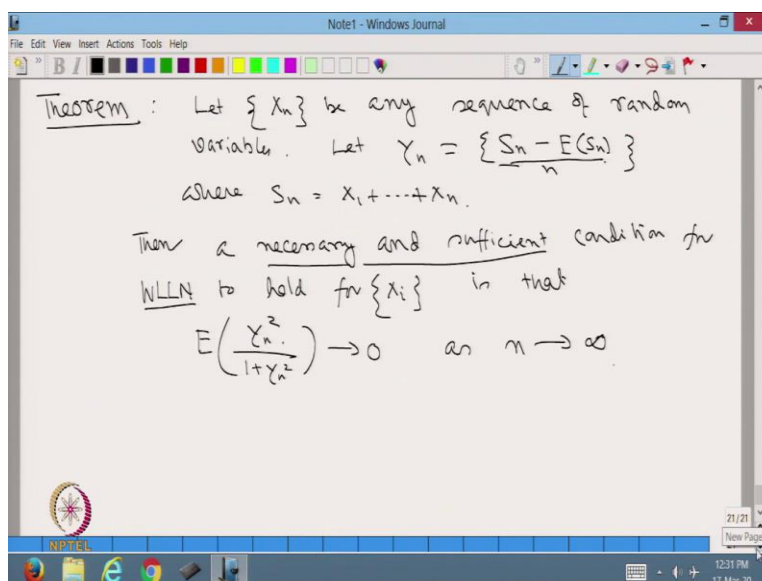 Note1 - Windows Journal
File Edit View Insert Actions Tools Help
B I
Theorem : Let {Xn} be any sequence of random
variables. Let Yn = { Sn - E(Sn) / n }
where Sn = X1 + ---- + Xn.
Then a necessary and sufficient condition for
WLLN to hold for {Xi} is that
E( Yn² / 1+Yn² ) → 0 as n → ∞
NPTEL
21/21
New Page
12:31 PM